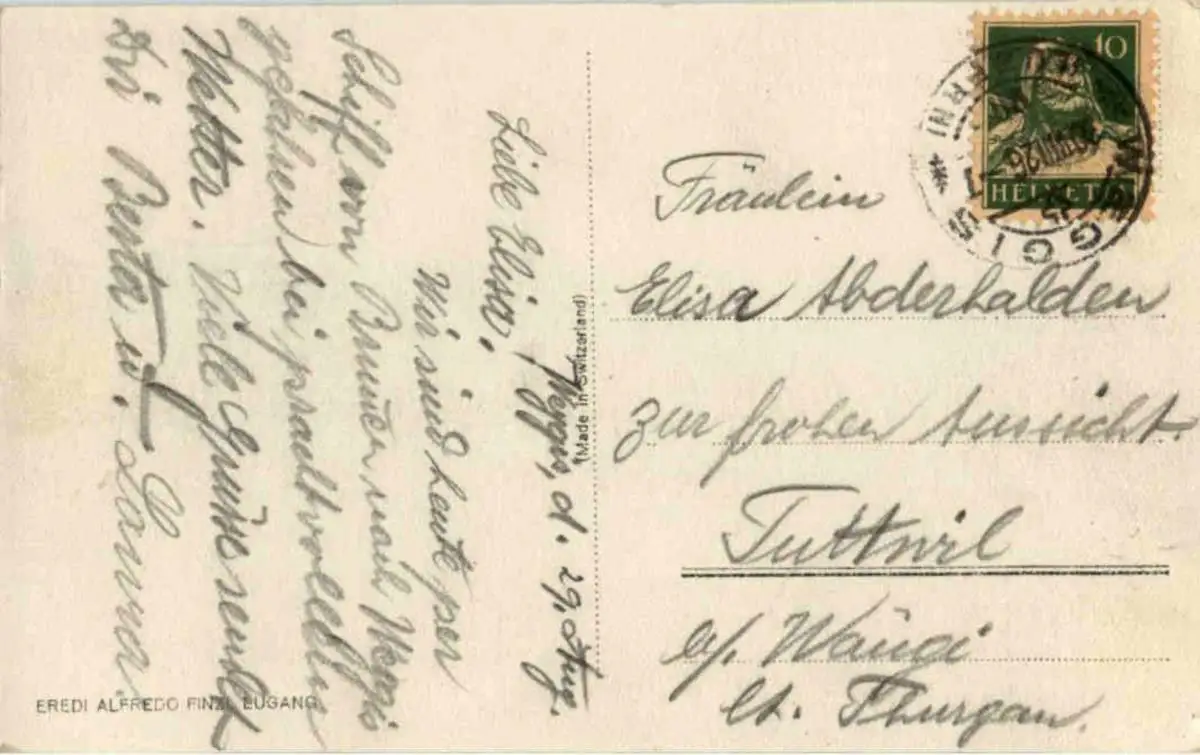 Weggis, d. 29. Aug.
Liebe Elisa,
Wir sind heute per
Schiff von Brunnen nach Weggis
gefahren bei prachtvollem
Wetter. Viele Grüsse sendet
Dir Berta u.
(Made in Switzerland)
EREDI ALFREDO FINZI, LUGANO
10
HELVETIA
WEGGIS
Fräulein
Elisa Abderhalden
zur frohen Aussicht.
Tuttwil
b/. Wängi
Ct. Thurgau.